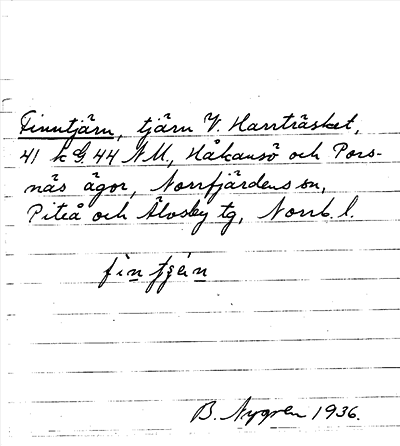 Finntjärn, tjärn V. Harrträsket,
41 k G. 44 NM., Håkansö och Pors-
näs ägor, Norrfjärdens sn,
Piteå och Älvsby tg, Norrb. l.
B. Nygren 1936.